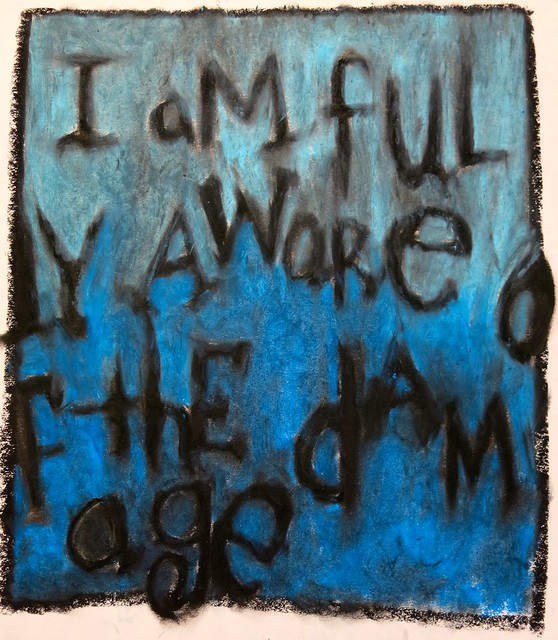 I aM fULL
Y AWaRe o
F thE dAM
age